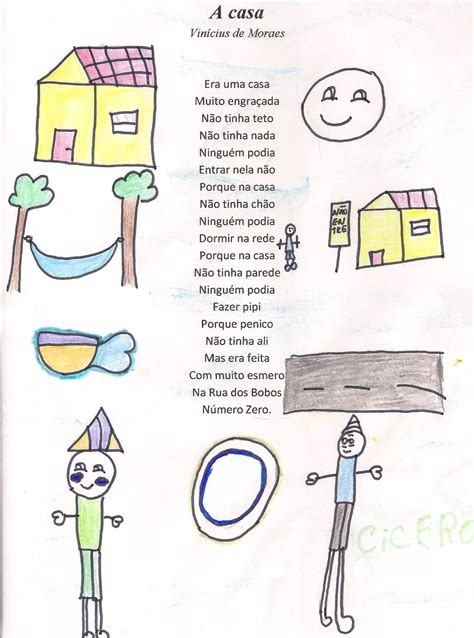 A casa
Vinícius de Moraes
Era uma casa
Muito engraçada
Não tinha teto
Não tinha nada
Ninguém podia
Entrar nela não
Porque na casa
Não tinha chão
Ninguém podia
Dormir na rede
Porque na casa
Não tinha parede
Ninguém podia
Fazer pipi
Porque penico
Não tinha ali
Mas era feita
Com muito esmero
Na Rua dos Bobos
Número Zero.
NÃO
EN
TRES
CiCERO